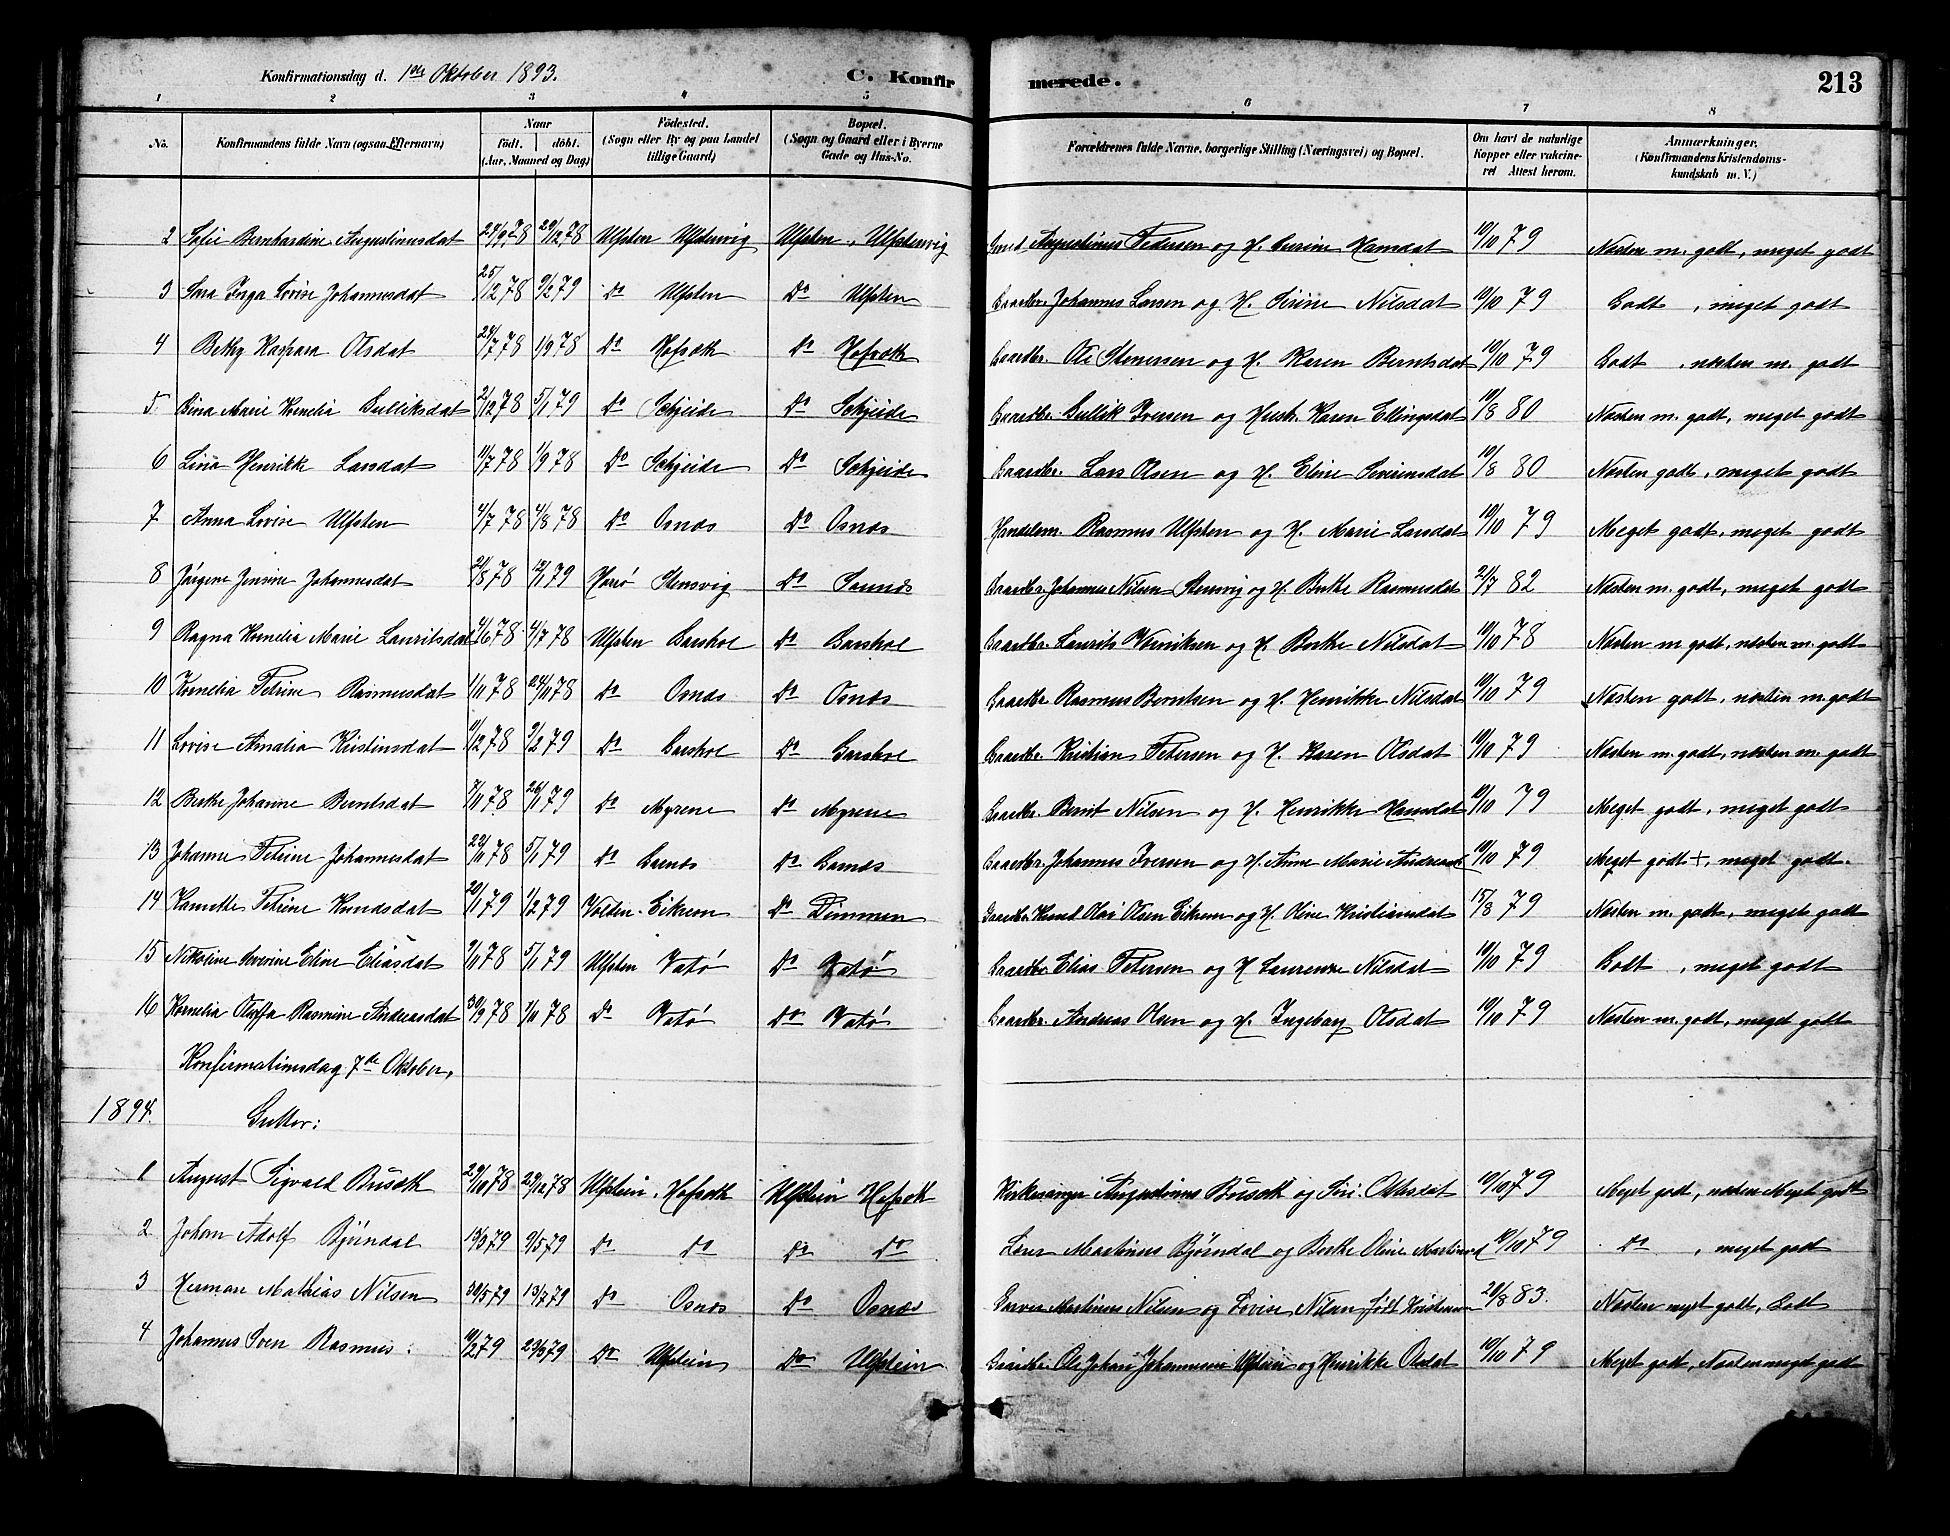 Konfirmationsdag d. 1ste Oktober 1893. C. Konfirmerede. 213
1 2 3 4 5 6 7 8
No. Konfirmandens fulde Navn (ogsaa Efternavn) Naar født. døbt. (Aar, Maaned og Dag) Fødested. (Sogn eller By og paa Landet tillige Gaard) Bopæl. (Sogn og Gaard eller i Byerne Gade og Hus-No. Forældrenes fulde Navne, borgerlige Stilling (Næringsvei) og Bopæl. Om havt de naturlige Kopper eller vakcineret Attest herom. Anmærkninger. (Konfirmandens Kristendomskundskab m. V.)
2 Sofie Bernhardine Augustinusdat 24/9 78 29/12 78 Ulfsten Ulfstenvig Ulfsten, Ulfstenvig Augustinus Pedersen og H. Hansdat 10/10 79 Næsten m. godt, meget godt
3 Sara Inga Lovise Johannesdat 25/12 78 9/2 79 Do Ulfsten Do Ulfsten Gaardbr. Johannes Larsen og H. Sirine Nilsdat 10/10 79 Godt, meget godt
4 Bethy Kaspara Olsdat 24/7 78 1/9 78 Do Hofsæth Do Hofsæth Gaardbr. Ole Stenersen og H. Karen Berntsdat 10/10 79 Godt, næsten m. godt
5 Bina Marie Kornelia Gulliksdat 2/12 78 5/1 79 Do Schjeide Do Schjeide Gaardbr. Gullik Iversen og Hust. Karen Ellingsdat 10/8 80 Næsten m. godt, meget godt
6 Lina Henrikke Larsdat 11/7 78 1/9 78 Do Schjeide Do Schjeide Gaardbr. Lars Olsen og H. Eline Severinsdat 10/8 80 Næsten godt, meget godt
7 Anna Lovise Ulfsten 4/7 78 4/8 78 Do Osnæs Do Osnæs Handelsm. Rasmus Ulfsten og H. Marie Larsdat 10/10 79 Meget godt, meget godt
8 Jørgine Jensine Johannesdat 21/8 78 12/1 79 Harø Stensvig Do Saunæs Gaardbr. Johannes Nilsen Stensvig og H. Berthe Rasmusdat 21/7 82 Næsten m. godt, meget godt
9 Ragna Kornelia Marie Lauritsdat 4/6 78 4/7 78 Ulfsten Garshol Do Garshol Gaardbr. Laurits Henriksen og H. Berthe Nilsdat 10/10 78 Næsten m godt, næsten m. godt
10 Kornelia Petrine Rasmusdat 1/11 78 24/11 78 Do Osnæs Do Osnæs Gaardbr. Rasmus Berntsen og H. Henrikke Nilsdat 10/10 79 Næsten godt, næsten m. godt
11 Lovise Amalia Kristinsdat 11/12 78 9/2 79 Do Garshol Do Garshol Gaardbr. Kristian Petersen og H. Karen Olsdat 10/10 79 Næsten m. godt, næsten m. godt
12 Berthe Johanne Berntsdat 7/11 78 26/1 79 Do Myrene Do Myrene Gaardbr. Bernt Nilsen og H. Henrikke Hansdat 10/10 79 Meget godt, meget godt
13 Johanne Petrine Johannesdat 22/11 78 5/1 79 Do Garnæs Do Garnæs Gaardbr. Johannes Iversen og H. Anne Marie Andreasd 10/10 79 Meget godt +, meget godt.
14 Petrine Knudsdat 20/1 79 1/2 79 Volden. Eikrem Do Dimmen Gaardbr. Knud Olai Olsen Eikrem og H. Oline Kristiansdat 15/8 79 Næsten m. godt, meget godt
15 Nikoline Severine Eline Eliasdat 9/11 78 5/1 79 Ulfsten Vatø Do Vatø Gaardbr. Elias Petersen og H Laurenze Nilsdat 10/10 79 Godt, meget godt
16 Kornelia Oluffa Rasmine Andreasdat 30/9 78 1/11 78 Do Vatø Do Vatø Gaardbr. Andreas Olsen og H. Ingeborg Olsdat 10/10 79 Næsten m. godt, meget godt
Konfirmationsdag 7de Oktober,
1894. Gutter:
1 August Sigvald Busæth 29/10 78 29/12 78 Ulfstein, Hofsæth Ulfstein Hofsæth Kirkesanger Augustinus Busæth og Siri Olsdat 10/10 79 Meget godt, næsten Meget godt
2 Johan Adolf Bjørndal 13/3 79 9/5 79 Do Do Do Do Lærer Martinus Bjørndal og Berthe Oline Martinsd 10/10 79 Do, meget godt
3 Herman Mathias Nilsen 30/5 79 13/7 79 Do Osnæs Do Osnæs Garver Martinus Nilsen og Lovise Nilsen født Kristensen 20/8 83. Næsten meget godt, Godt
4 Johannes Sven Rasmus: 10/2 79 23/3 79 Do Ulfstein Do Ulfstein Gaardbr Ole Johan Johannesen Ulfstein og Henrikke Olsdat 10/10 79 Meget godt, Næsten meget godt